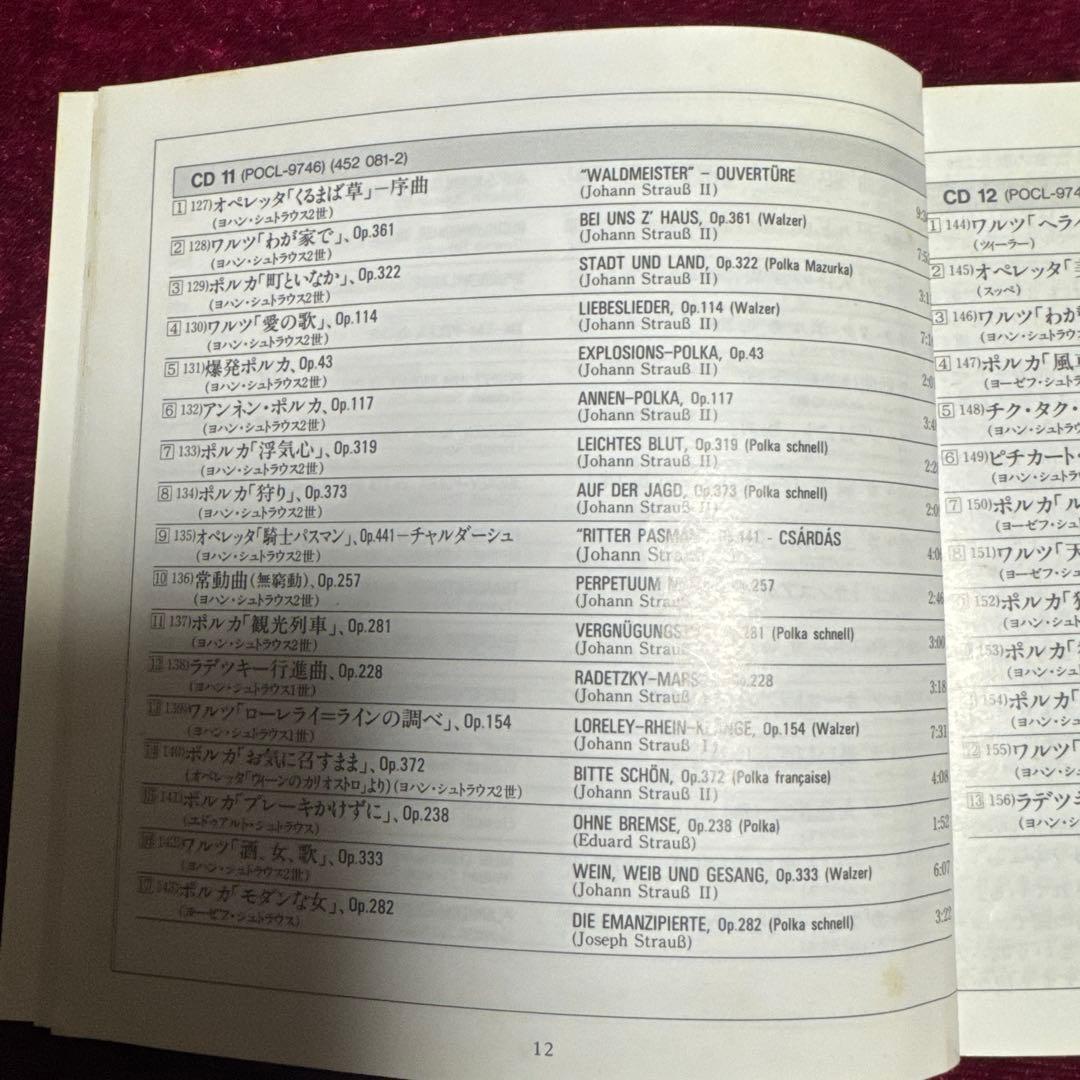 CD 11 (POCL-9746) (452 081-2)
1 127)オペレッタ「くるまば草」－序曲 "WALDMEISTER" – OUVERTÜRE
(ヨハン・シュトラウス2世) (Johann Strauß II)
2 128)ワルツ「わが家で」、Op.361 BEI UNS Z' HAUS, Op.361 (Walzer)
(ヨハン・シュトラウス2世) (Johann Strauß II)
3 129)ポルカ「町といなか」、Op.322 STADT UND LAND, Op.322 (Polka Mazurka)
(ヨハン・シュトラウス2世) (Johann Strauß II)
4 130)ワルツ「愛の歌」、Op.114 LIEBESLIEDER, Op.114 (Walzer)
(ヨハン・シュトラウス2世) (Johann Strauß II)
5 131)爆発ポルカ、Op.43 EXPLOSIONS–POLKA, Op.43
(ヨハン・シュトラウス2世) (Johann Strauß II)
6 132)アンネン・ポルカ、Op.117 ANNEN–POLKA, Op.117
(ヨハン・シュトラウス2世) (Johann Strauß II)
7 133)ポルカ「浮気心」、Op.319 LEICHTES BLUT, Op.319 (Polka schnell)
(ヨハン・シュトラウス2世) (Johann Strauß II)
8 134)ポルカ「狩り」、Op.373 AUF DER JAGD, Op.373 (Polka schnell)
(ヨハン・シュトラウス2世) (Johann Strauß II)
9 135)オペレッタ「騎士パスマン」、Op.441－チャルダーシュ "RITTER PASMAN", Op.441 - CSÁRDÁS
(ヨハン・シュトラウス2世) (Johann Strauß
10 136)常動曲(無窮動)、Op.257 PERPETUUM Op.257 2:46
(ヨハン・シュトラウス2世) (Johann Strauß
11 137)ポルカ「観光列車」、Op.281 281 (Polka schnell) 3:00
(ヨハン・シュトラウス2世) (Johann Strauß
12 138)ラデツキー行進曲、Op.228 Op.228 3:18
(ヨハン・シュトラウス1世) (Johann Strauß
13 139)ワルツ「ローレライ=ラインの調べ」、Op.154 LORELEY–RHEIN–KLÄNGE, Op.154 (Walzer) 7:31
(ヨハン・シュトラウス1世) (Johann Strauß I)
14 140)ポルカ「お気に召すまま」、Op.372 BITTE SCHÖN, Op.372 (Polka française) 4:08
(オペレッタ「ウィーンのカリオストロ」より)(ヨハン・シュトラウス2世) (Johann Strauß II)
15 141)ポルカ「ブレーキかけずに」、Op.238 OHNE BREMSE, Op.238 (Polka) 1:52
(エドゥアルト・シュトラウス) (Eduard Strauß)
16 142)ワルツ「酒、女、歌」、Op.333 WEIN, WEIB UND GESANG, Op.333 (Walzer) 6:07
(ヨハン・シュトラウス2世) (Johann Strauß II)
17 143)ポルカ「モダンな女」、Op.282 DIE EMANZIPIERTE, Op.282 (Polka schnell) 3:22
(ヨーゼフ・シュトラウス) (Joseph Strauß)
12
CD 12 (POCL-974
1 144)ワルツ「ヘラ
(ツィーラー)
2 145)オペレッタ「
(スッペ)
3 146)ワルツ「わが
(ヨハン・シュトラ
4 147)ポルカ「風車
(ヨーゼフ・シュトラ
5 148)チク・タク・
(ヨハン・シュトラ
6 149)ピチカート・
(ヨハン・シュトラ
7 150)ポルカ「ル
(ヨーゼフ・シュ
8 151)ワルツ「天
(ヨーゼフ・シュ
152)ポルカ「狩
(ヨハン・シュ
153)ポルカ「
(ヨハン・シュ
154)ポルカ「
(ヨハン・シュ
12 155)ワルツ「
(ヨハン・シュ
13 156)ラデツキ
(ヨハン・シ